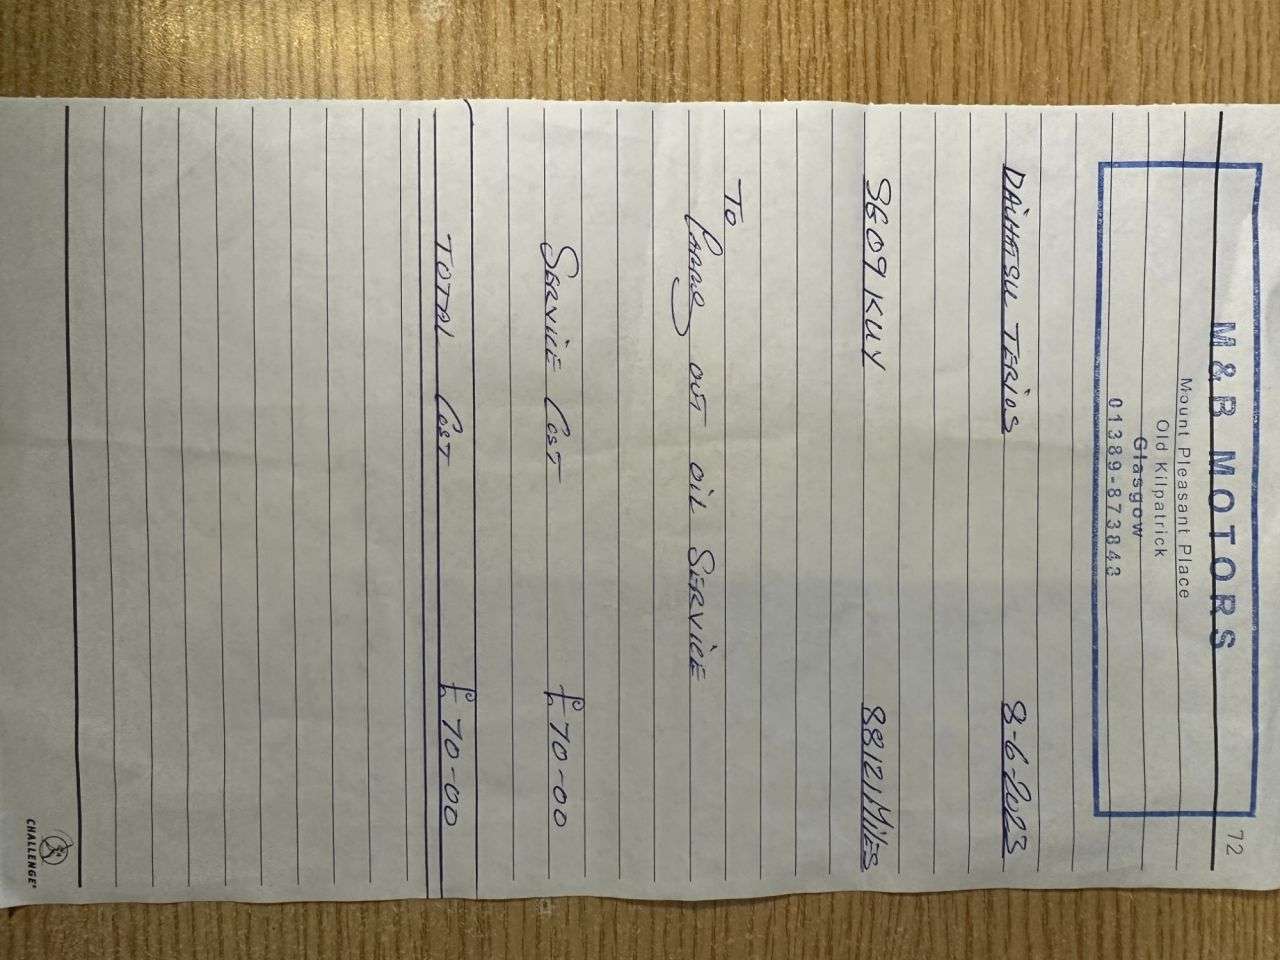 72
M&B MOTORS
Mount Pleasant Place
Old Kilpatrick
Glasgow
01389-873843
DAIHATSU TERIOS 8-6-2023
SG09KUY 88121 MILES
TO
CARRY OUT OIL SERVICE
SERVICE COST £70-00
TOTAL COST £70-00
CHALLENGE